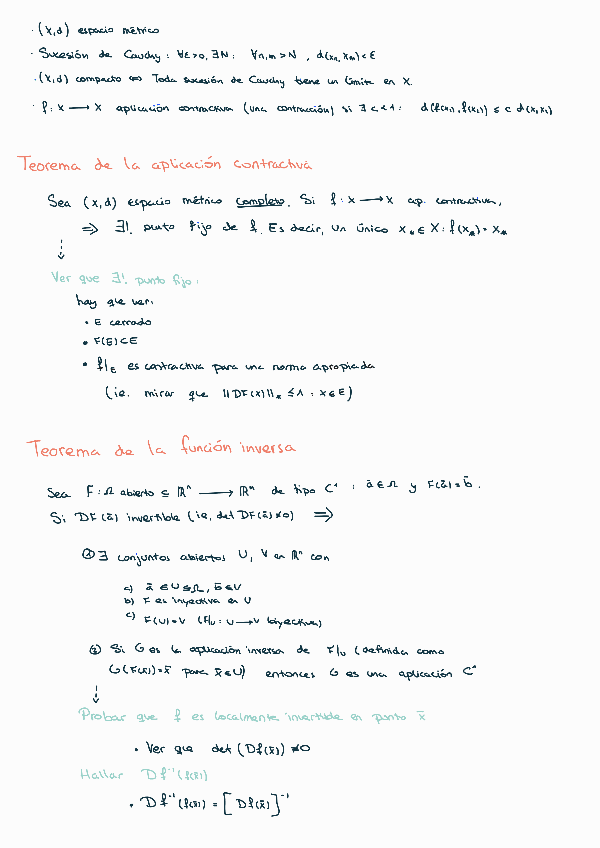 · (X,d) espacio métrico
· Sucesión de Cauchy : ∀ε>0, ∃N : ∀n,m>N , d(xn, xm)<ε
· (X,d) compacto ⇔ Toda sucesión de Cauchy tiene un límite en X.
· f: X → X aplicación contractiva (una contracción) si ∃ c<1 : d(f(x₁),f(x₂)) ≤ c d(x₁,x₂)
Teorema de la aplicación contractiva
Sea (x,d) espacio métrico completo. Si f: X → X ap. contractiva,
⇒ ∃! punto fijo de f. Es decir, un único x* ∈ X : f(x*) = x*
Ver que ∃! punto fijo:
hay que ver:
• E cerrado
• F(E)⊂E
• f|E es contractiva para una norma apropiada
(ie. mirar que ||DF(x)||* ≤ 1 : x∈E)
Teorema de la función inversa
Sea F: Ω abierto ⊆ ℝⁿ → ℝⁿ de tipo C¹ : ā∈Ω y F(ā)=b̄.
Si DF(ā) invertible (ie, det DF(ā)≠0) ⇒
① ∃ conjuntos abiertos U, V en ℝⁿ con
a) ā ∈ U ⊆ Ω, b̄ ∈ V
b) F es inyectiva en U
c) F(U)=V (F|U : U → V biyectiva)
② Si G es la aplicación inversa de F|U (definida como
G(F(x̄))=x̄ para x̄∈U) entonces G es una aplicación C¹
Probar que f es localmente invertible en punto x̄
• Ver que det (Df(x̄)) ≠0
Hallar Df⁻¹(f(x̄))
• Df⁻¹(f(x̄)) = [Df(x̄)]⁻¹